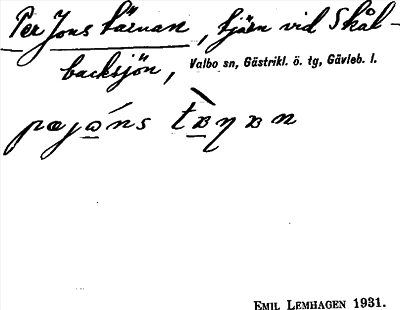 Per Jons tärnan, tjärn vid Skål-
backsjön, Valbo sn, Gästrikl. ö. tg, Gävleb. l.
pæjɷ́ns tæ̀ɳæn
EMIL LEMHAGEN 1931.